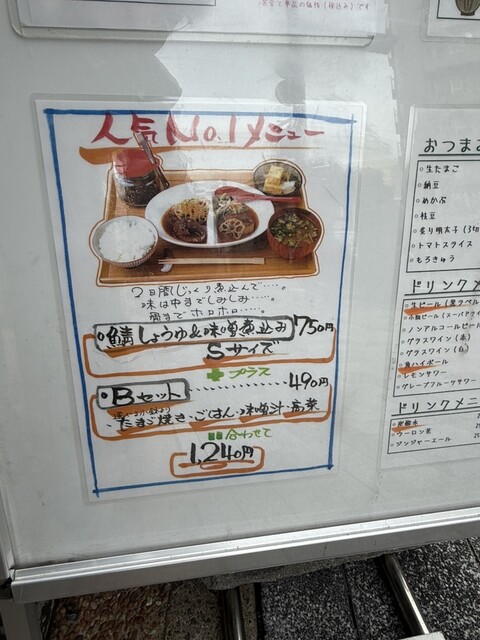 人気No.1メニュー
2日間じっくり煮込んで……。
味は中までしみしみ……。
骨までホロホロ……。
鯖しょうゆ&味噌煮込み 750円
Sサイズ
+プラス
・Bセット………490円
・たまご焼き・ごはん・味噌汁・高菜
合わせて
1,240円
おつま
○生たまご
○納豆
○めかぶ
○枝豆
○炙り明太子(3切
○トマトスライス
○もろきゅう
ドリンクメ
○生ビール(黒ラベル
○ノンアルコールビー
○グラスワイン(赤)
○グラスワイン(白)
○角ハイボール
○レモンサワー
○グレープフルーツサワー
ドリンクメニ
○ウーロン茶
○ジンジャーエール